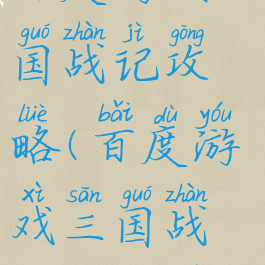 guó zhàn jì gōng
国战记攻
lüè bǎi dù yóu
略(百度游
xì sān guó zhàn
戏三国战